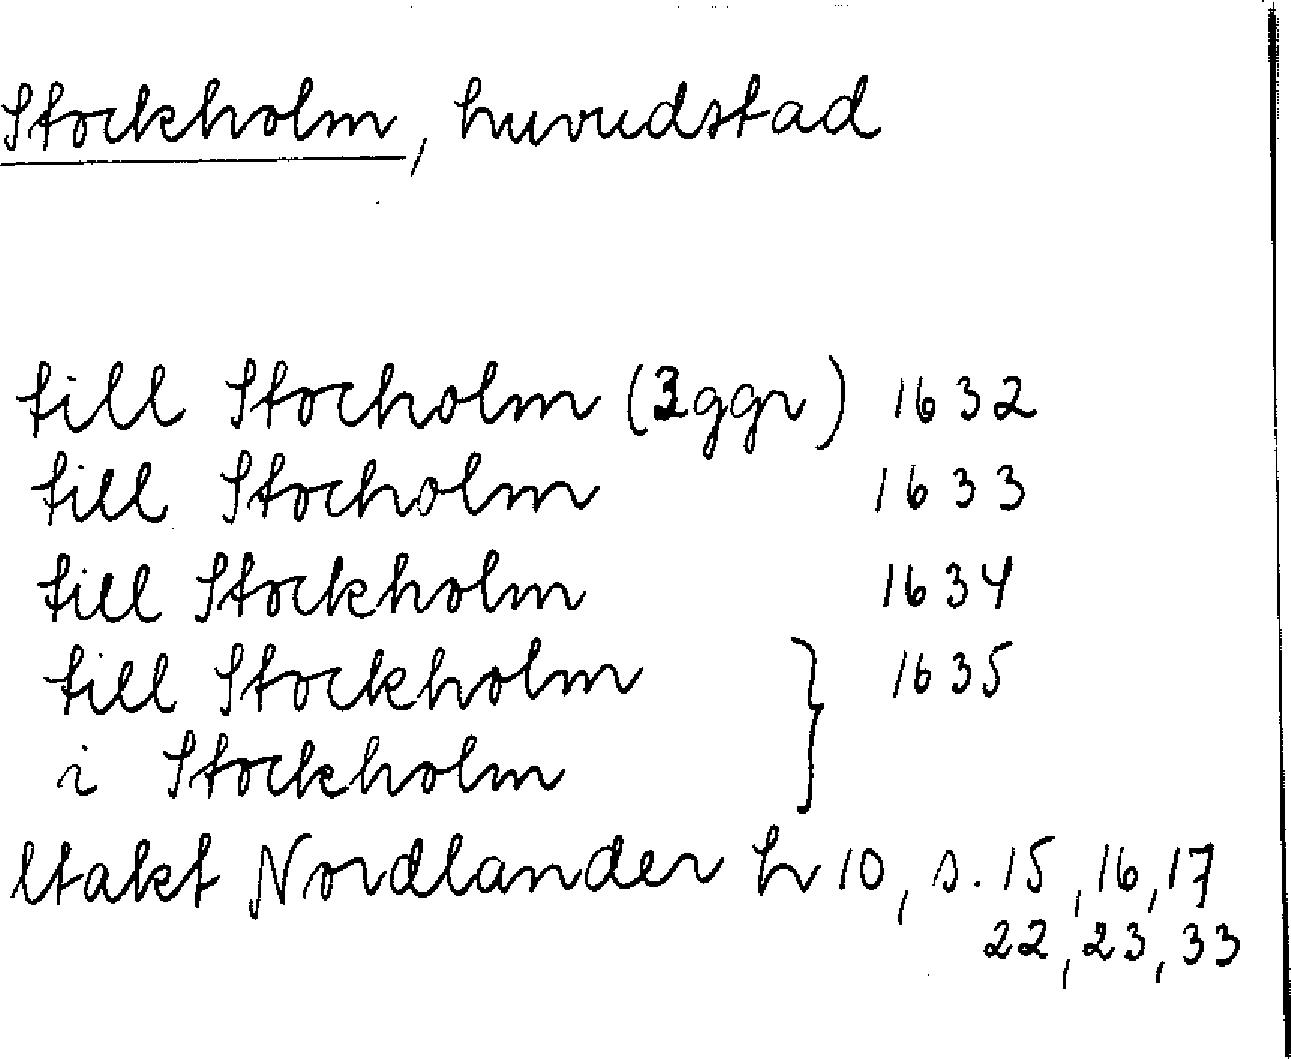 Stockholm, huvudstad
till Stocholm (3ggr) 1632
till Stocholm 1633
till Stockholm 1634
till Stockholm } 1635
i Stockholm
Nordlander h 10, s. 15, 16, 17
22, 23, 33